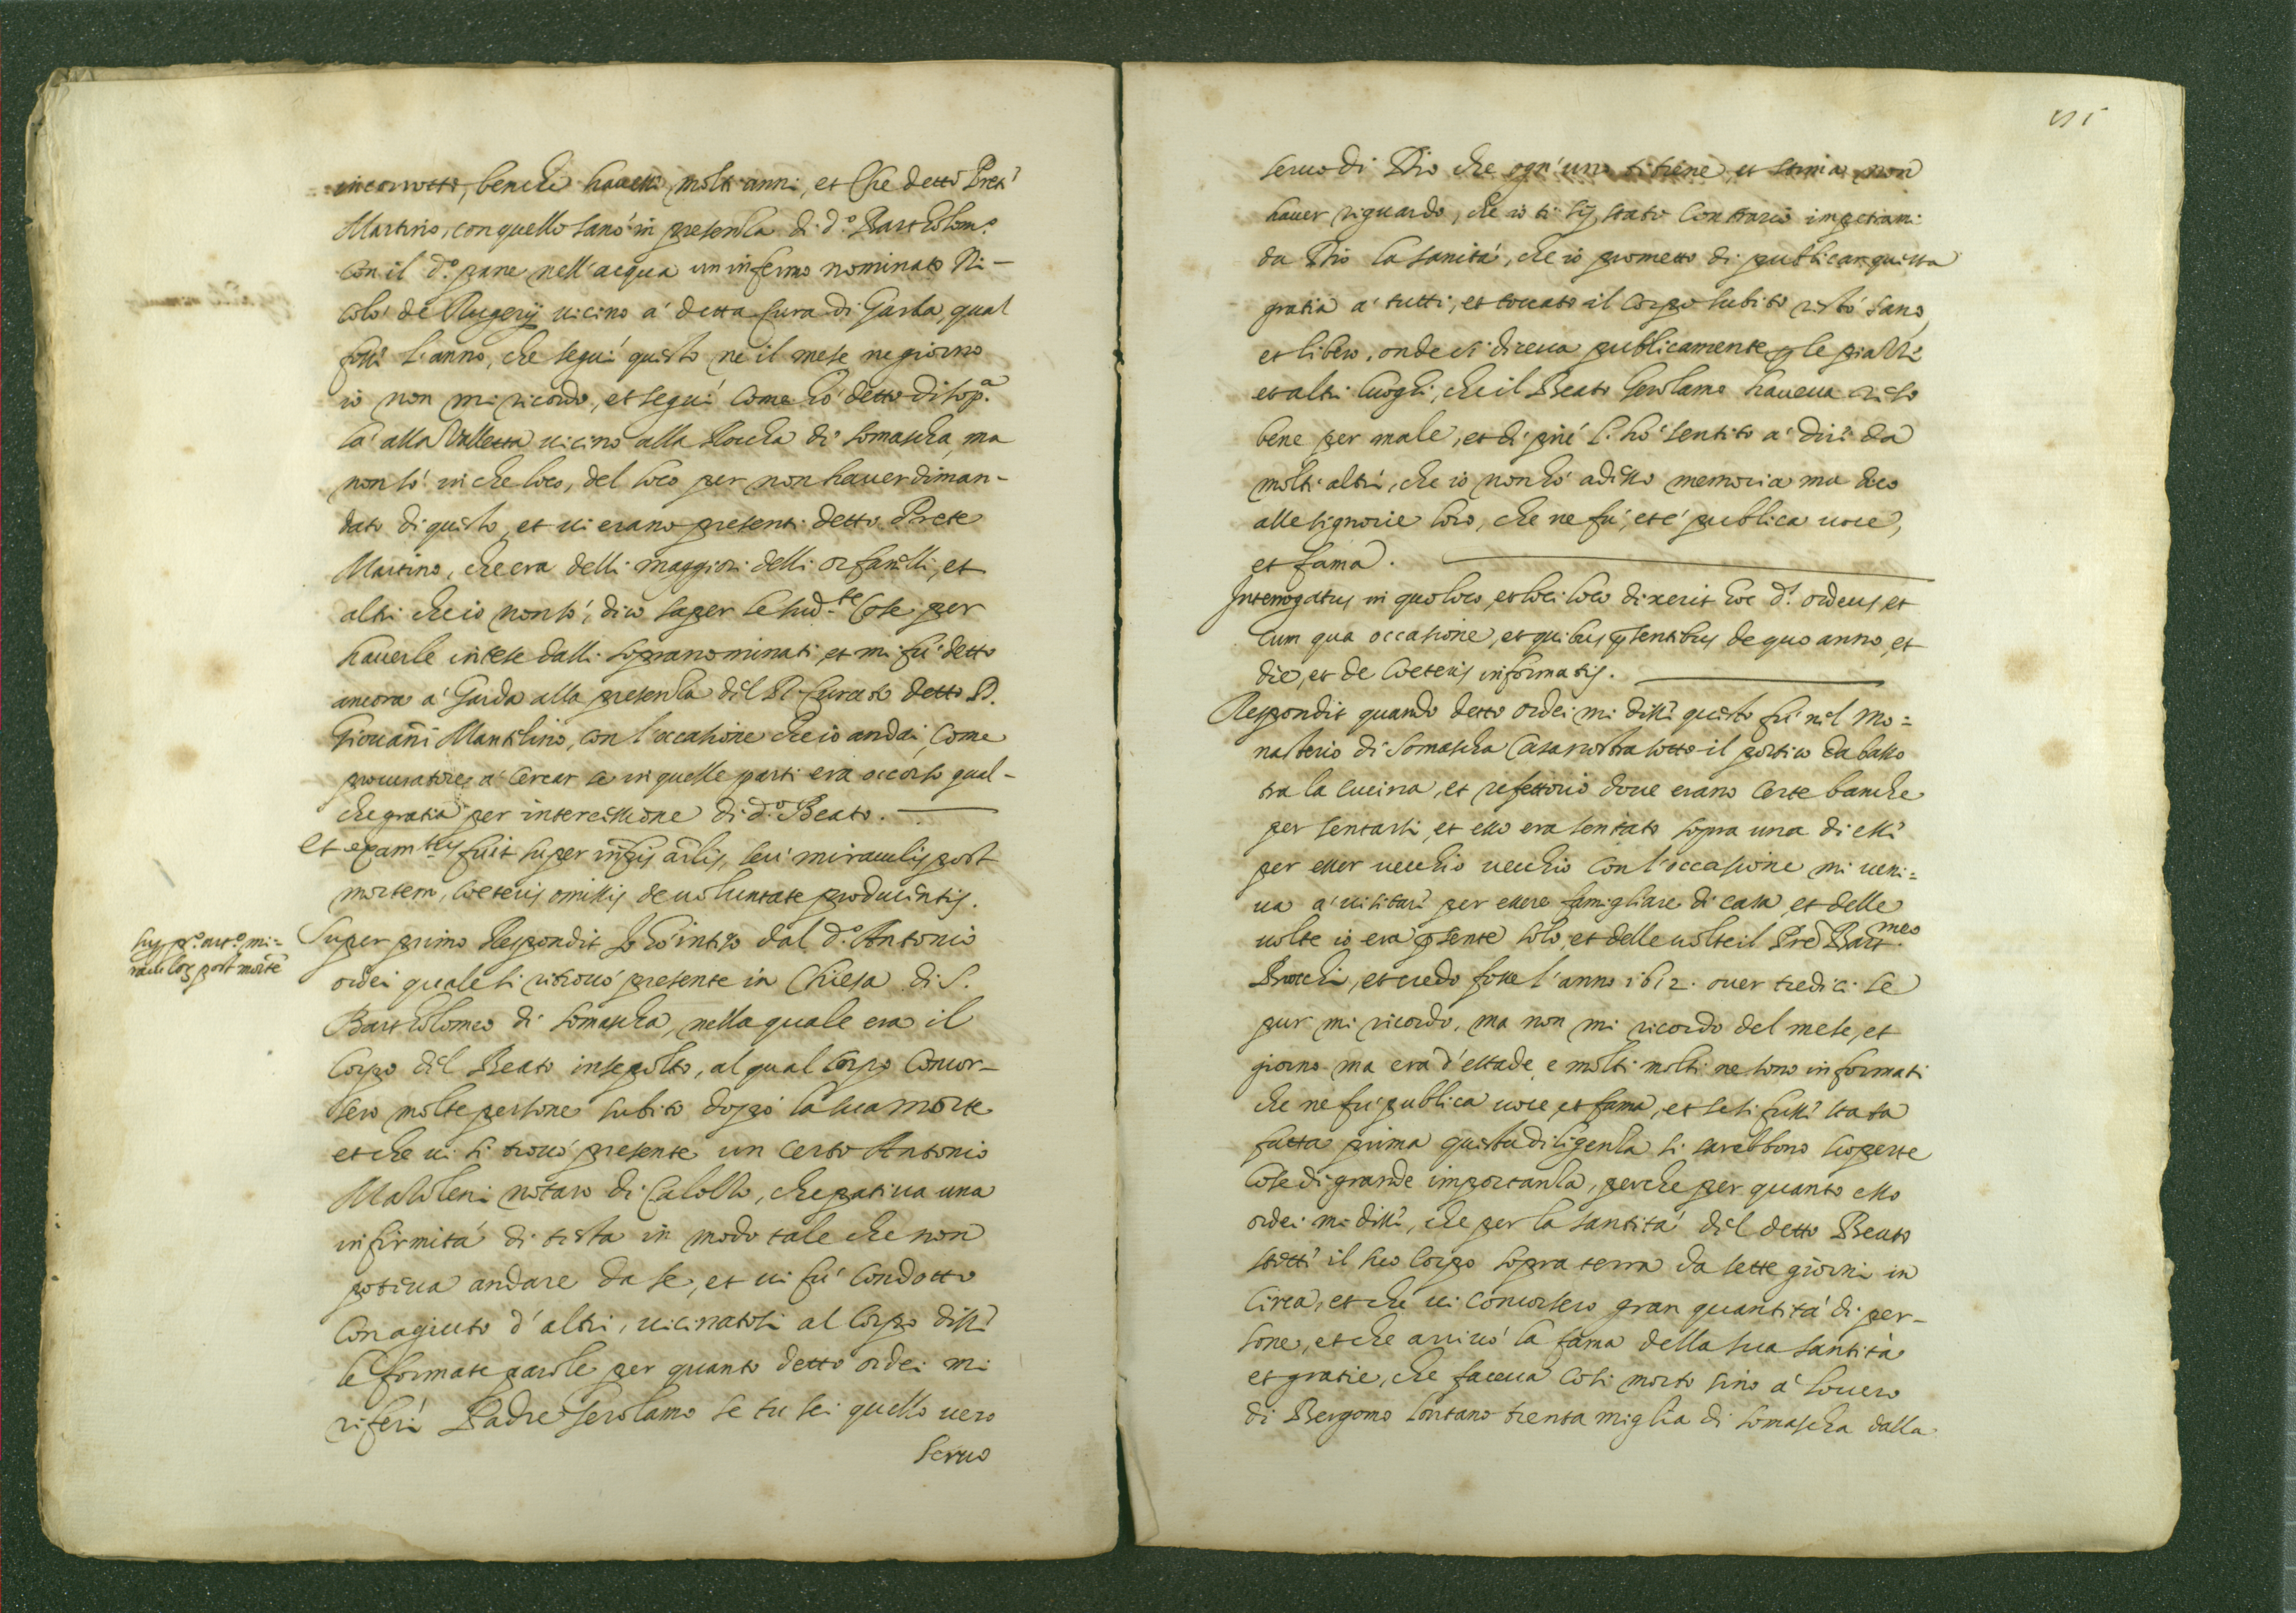 incorrotto, benche havesse molti anni, et che detto Prete
Martino, con quello sanò in presenza di d.º Bartholom.º
con il d.º pane nell'acqua un infermo nominato Ni-
colò de Rugerij vicino a' detta Cura di Garda, qual
fosse l'anno, che seguì questo ne il mese ne giorno
io non mi ricordo, et seguì come hò detto di sop.ª
là alla Valletta vicino alla Rocha di Somascha, ma
non sò in che loco, del loco per non haver diman-
dato di questo, et vi erano presenti detto Prete
Martino, che era delli maggiori delli orfanelli, et
altri che io non sò, dico saper le sud.te cose per
haverle intese dalli sopranominati, et mi fù detto
ancora a' Garda alla presenza del R. Curato detto D.
Giovañi Mantilino, con l'occasione che io andai, come
procuratore, a' cercar se in quelle parti era occorso qual-
che gratia per intercessione di d.º Beato.
Et exam.tus fuit super infrˢ arlis, seu miraculis post
mortem, coeteris omissis de voluntate producentis.
Sup. p.º art.º mi=
raculoꝝ post morte
Super primo Respondit Io hò inteso dal d.º Antonio
ordei quale si ritrovò presente in Chiesa di S.
Bartholomeo di Somascha, nella quale era il
Corpo del Beato insepolto, al qual Corpo concor-
sero molte persone subito doppò la sua morte
et che vi si trovò presente un certo Antonio
Mazoleni notaro di Calolzo, che pativa una
infirmità di testa in modo tale che non
poteva andare da se, et vi fù condotto
con agiuto d'altri, vicinatosi al Corpo disse
le formate parole per quanto detto ordei mi
riferì Padre Gerolamo se tu sei quello vero
servo
115
servo di Dio che ogn'uno ti tiene, et stima non
haver riguardo, che io ti sij stato contrario impetrami
da Dio la sanità, che io prometto di publicar questa
gratia a' tutti, et toccato il corpo subito restò sano,
et libero, onde si diceva publicamente ꝑ le piazze
et altri luoghi, che il Beato Gerolamo haveva reso
bene per male, et di più l'hò sentito a' dire da
molti altri, che io non hò adesso memoria ma dico
alle signorie loro, che ne fù, et è publica voce,
et fama.
Interrogatus in quo loco, et loci loco dixerit hoc d.s ordeus, et
cum qua occasione, et quibus pñtentibus de quo anno, et
die, et de coeteris informatis.
Respondit quando detto ordei mi disse questo fù nel Mo=
nasterio di Somascha Casa nostra sotto il portico da basso
tra la cucina, et refettorio dove erano certe banche
per sentarsi, et esso era sentato sopra una di esse
per esser vecchio vecchio con l'occasione mi veni=
va a' visitare per essere famigliare di casa, et delle
volte io era pñsente solo, et delle volte il Pre Bart.meo
Brocchi, et credo fosse l'anno 1612. over tredici se
pur mi ricordo, ma non mi ricordo del mese, et
giorno ma era d'estade, e molti molti ne sono informati
che ne fù publica voce, et fama, et se si fusse stata
fatta prima questa diligenza si sarebbono scoperte
cose di grande importanza, perche per quanto esso
ordei mi disse, che per la santità del detto Beato
stette il suo Corpo sopra terra da sette giorni in
circa, et che vi concorsero gran quantità di per-
sone, et che arrivò la fama della sua santità
et gratie, che faceva così morto sino a' Lovero
di Bergomo lontano trenta miglia di Somascha dalla